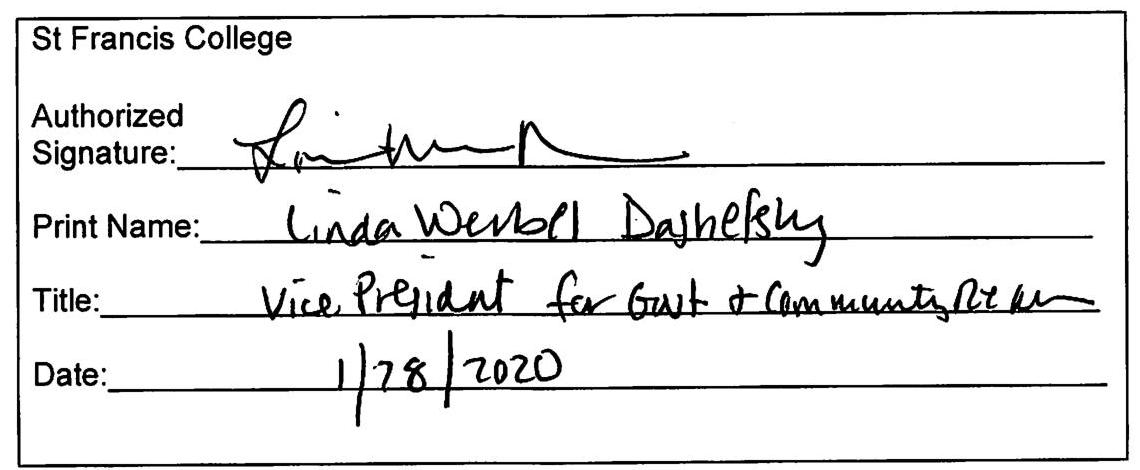 St Francis College
Authorized
Signature:
Print Name: Linda Werbel Dashefsky
Title: Vice President for Govt & Community
Date: 1/28/2020